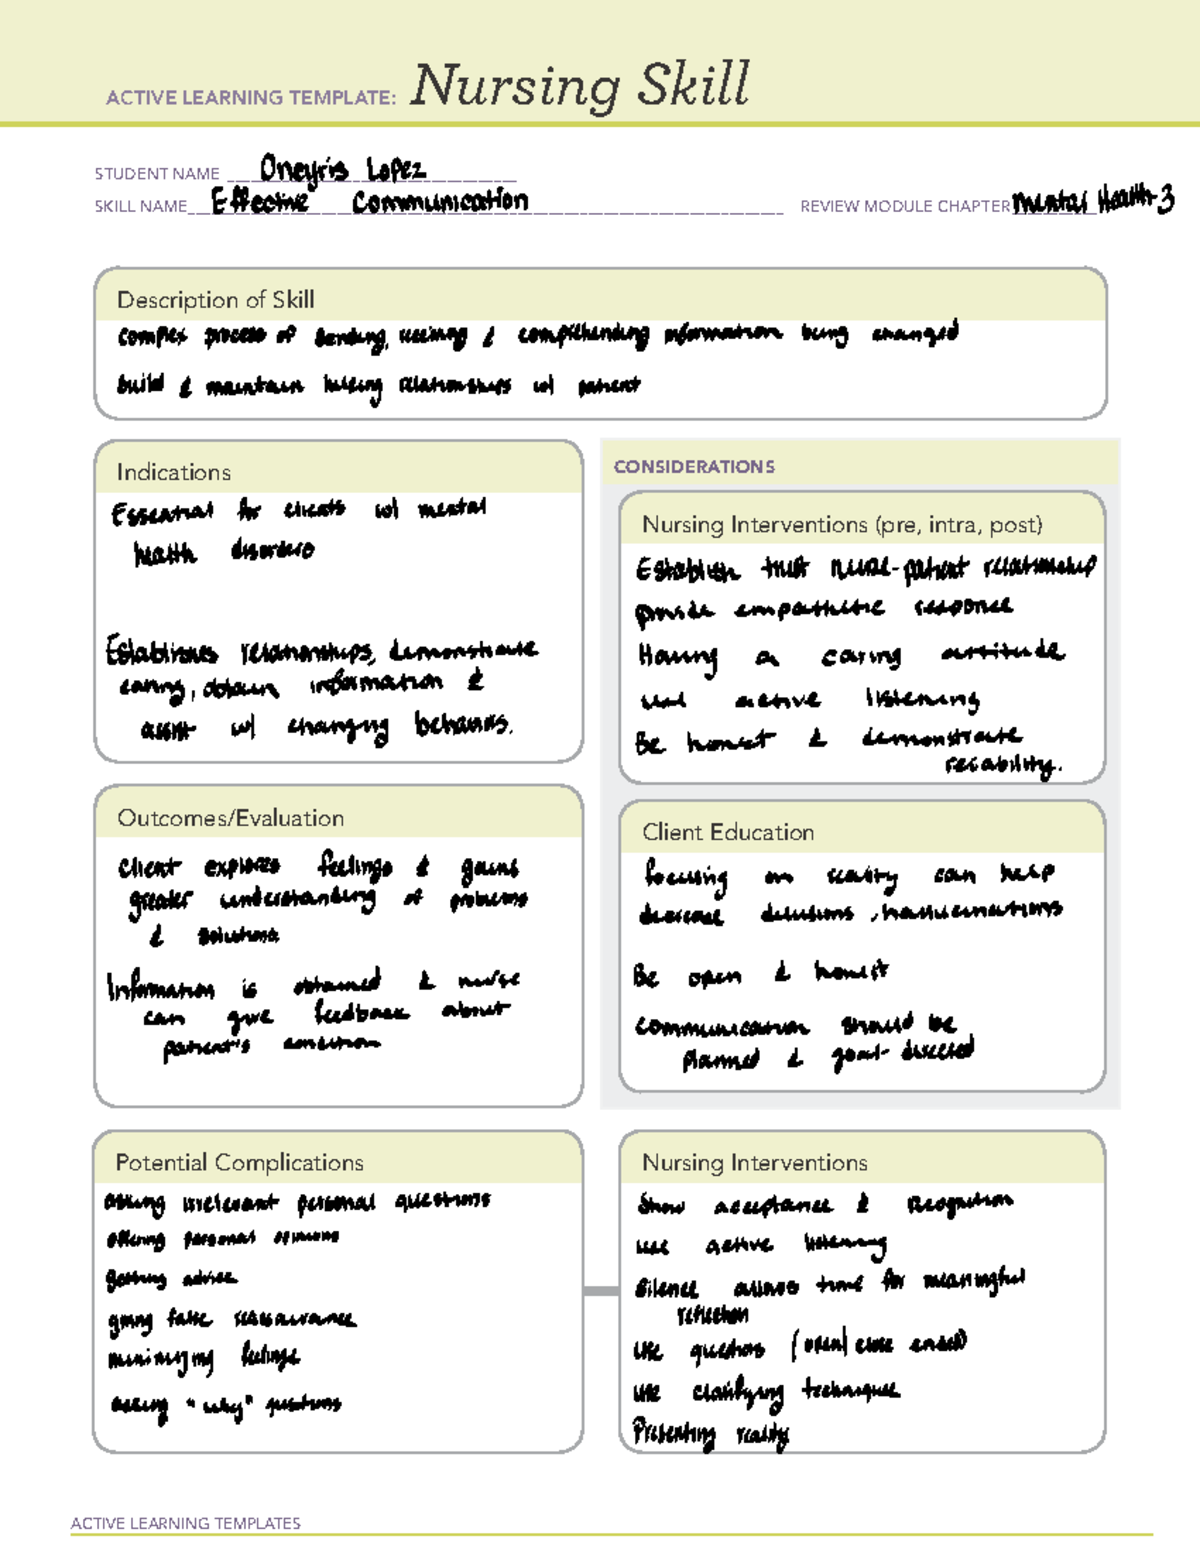 ACTIVE LEARNING TEMPLATE: Nursing Skill
STUDENT NAME Oneyris Lopez
SKILL NAME Effective Communication REVIEW MODULE CHAPTER Mental Health 3
Description of Skill
complex process of sending, receiving & comprehending information being changed
build & maintain helping relationships w/ patient
Indications
Essential for clients w/ mental
health disorders
Establishes relationships, demonstrate
caring, obtain information &
assist w/ changing behaviors.
CONSIDERATIONS
Nursing Interventions (pre, intra, post)
Establish trust nurse-patient relationship
provide empathetic response
Having a caring attitude
use active listening
Be honest & demonstrate
reliability.
Outcomes/Evaluation
Client explores feelings & gains
greater understanding of problems
& solutions
Information is obtained & nurse
can give feedback about
patient's condition
Client Education
focusing on reality can help
decrease delusions, hallucinations
Be open & honest
communication should be
planned & goal-directed
Potential Complications
asking irrelevant personal questions
offering personal opinions
advice
giving false reassurance
minimizing feelings
asking "why" questions
Nursing Interventions
Show acceptance & recognition
use active listening
Silence allows time for meaningful
reflection
use questions (open/close ended)
use clarifying techniques
Presenting reality
ACTIVE LEARNING TEMPLATES